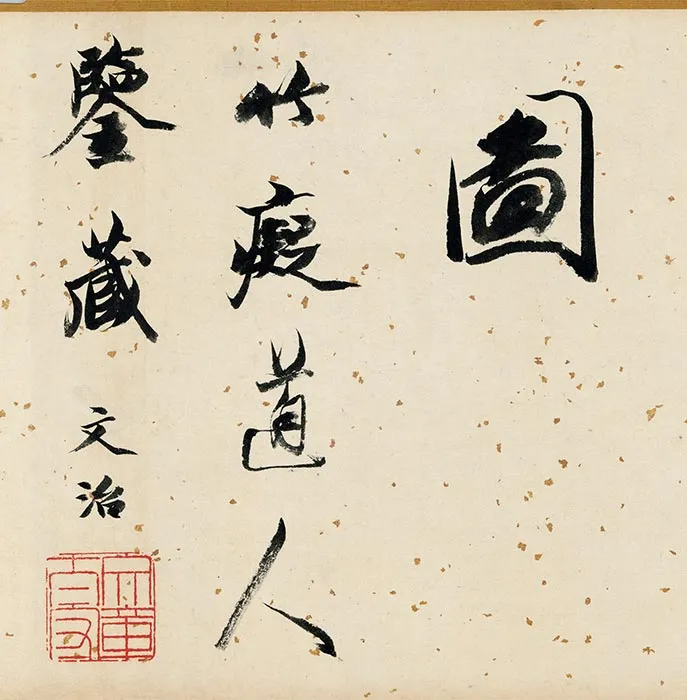 圖
竹癡道人
鑒藏 文治